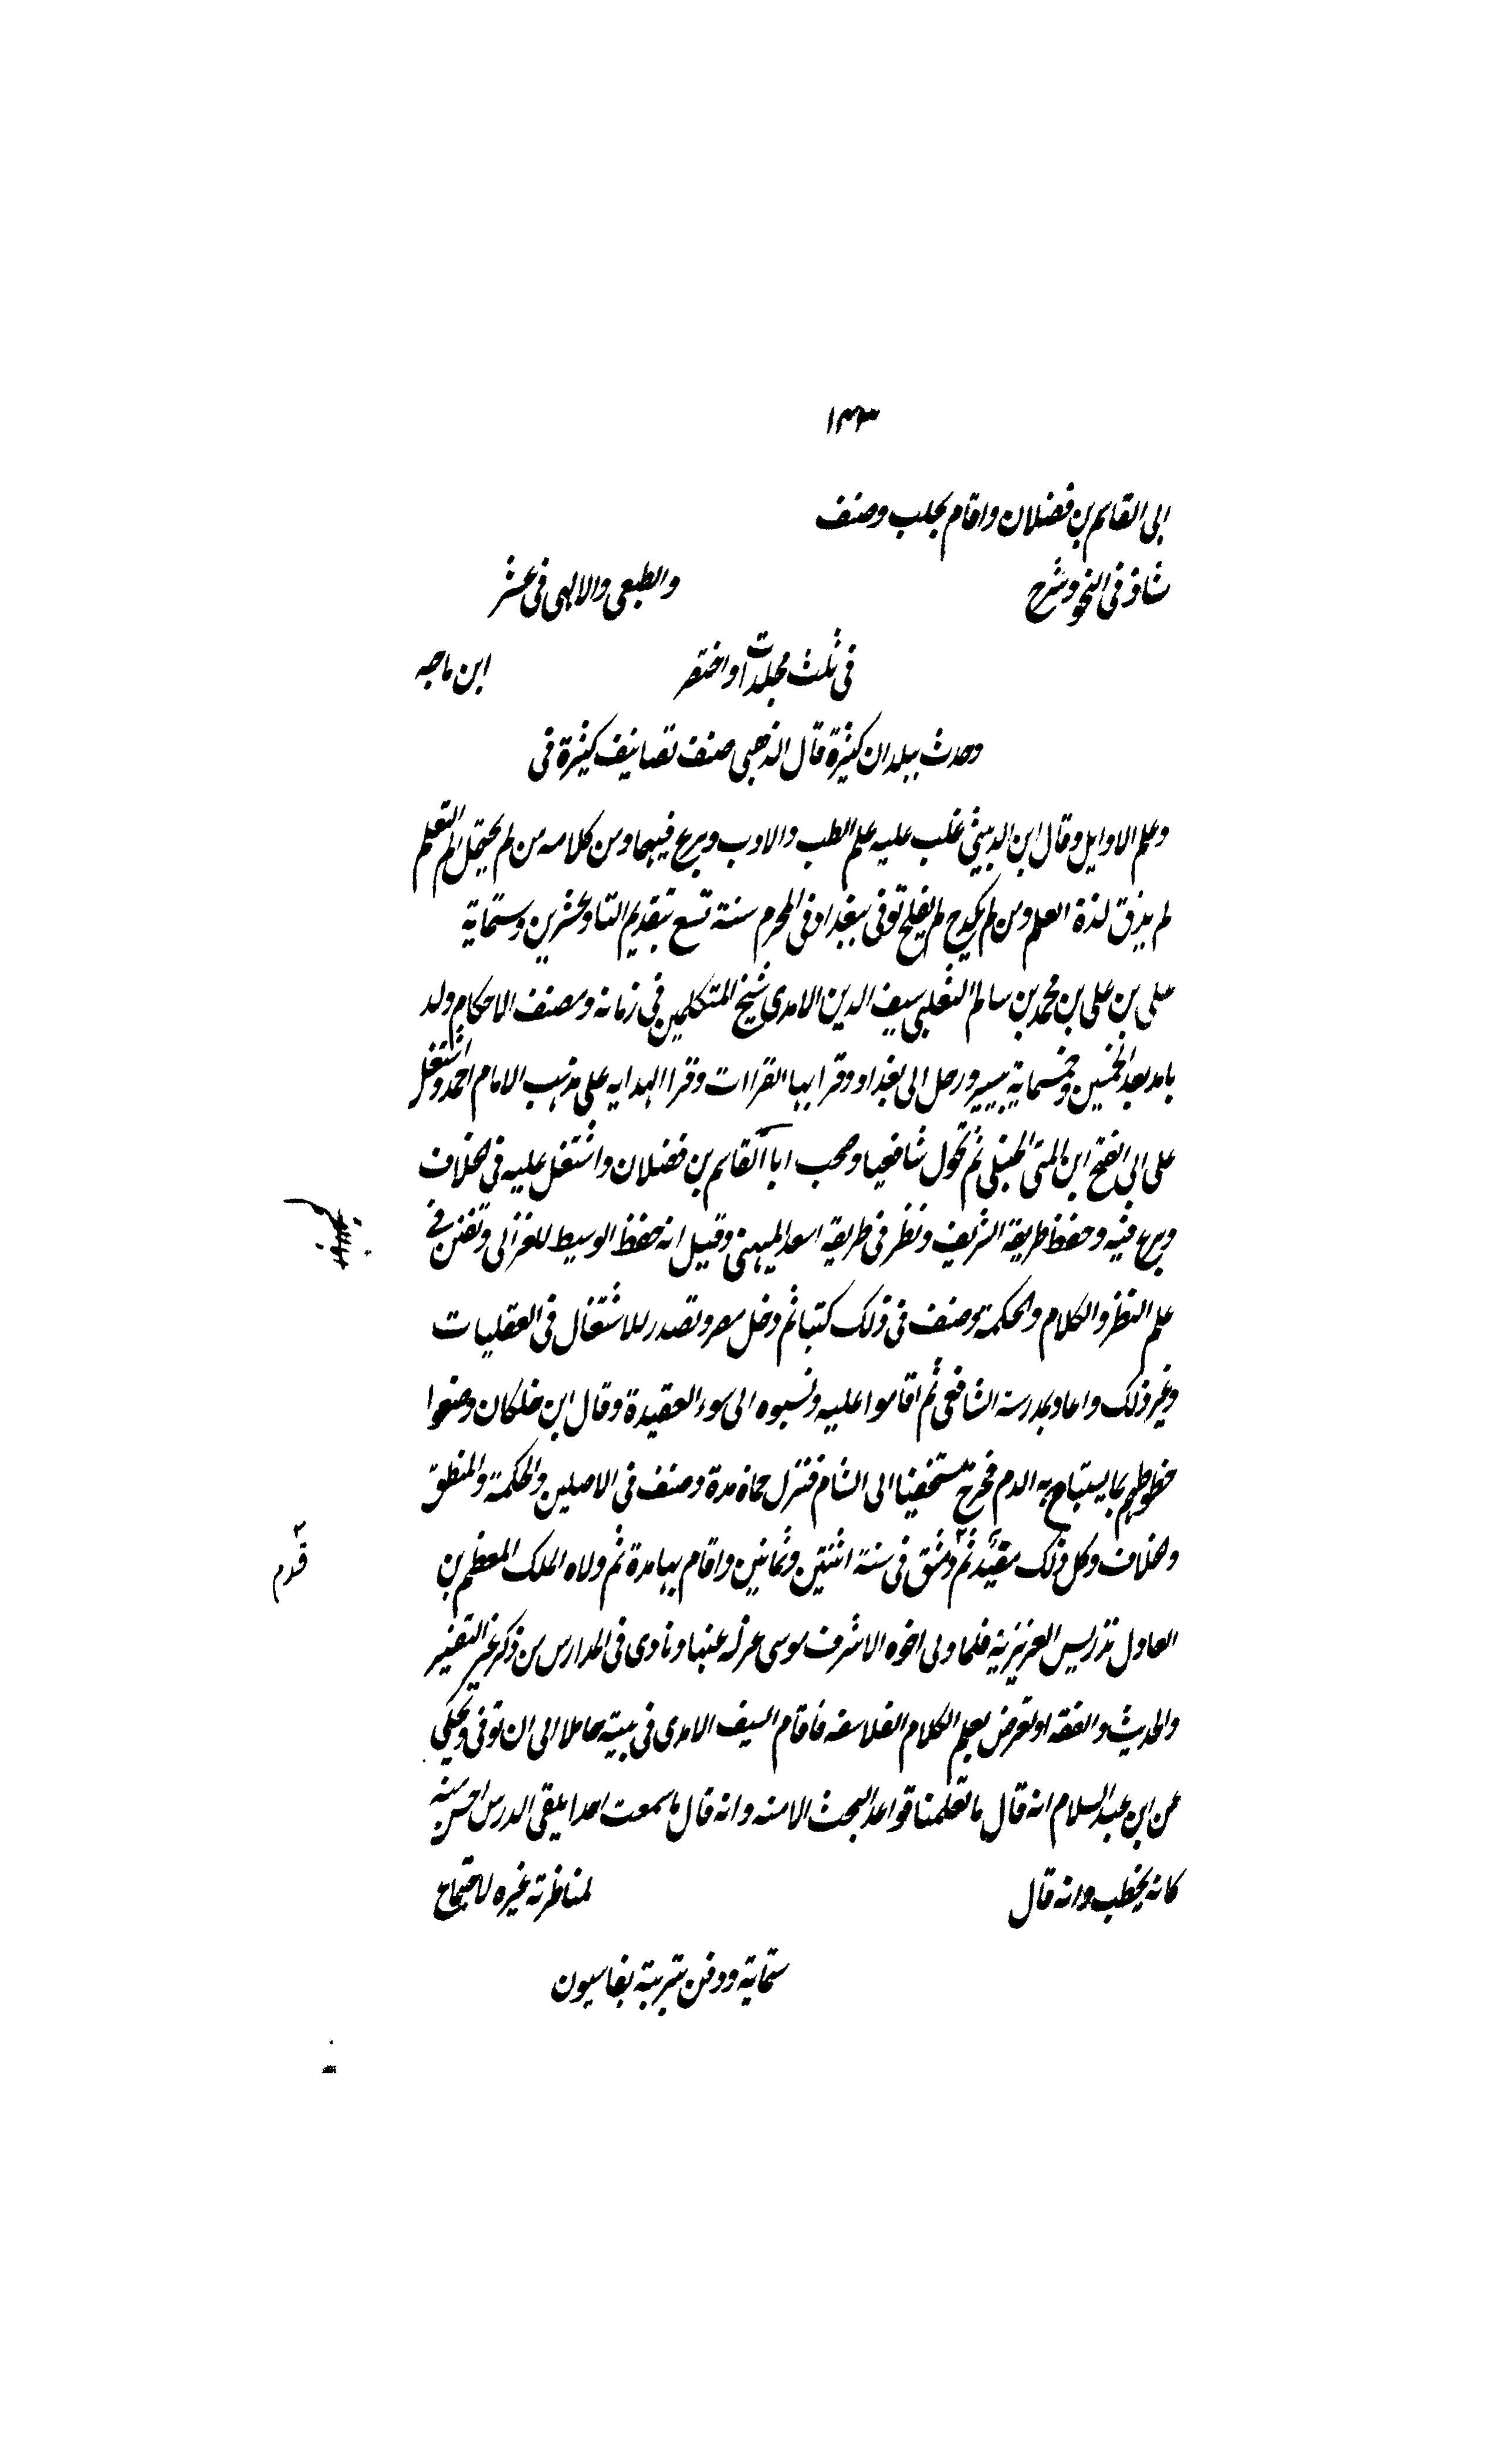 ١٤٣
ابى القاسم بن فضلان واقام بحلب وصنف
شاذ فى النحو وشرح والطبعى والالهى فى عشر
فى ثلث مجلدات او اختصر ابن ماجه
وحدث ببلدان كثيرة قال الذهبى صنف تصانيف كثيرة فى
وعلم الاوايل وقال ابن الدبيثى غلب عليه علم الطب والادب وبرع فيهما ومن كلامه من لم يحتمل الم التعلم
لم يذق لذة العلم ومن لم يكدح لم يفلح توفى ببغداد فى المحرم سنة تسع بتقديم التا وعشرين وستماية
على بن على بن محمد بن سالم الثعلبى سيف الدين الامدى شيخ المتكلمين فى زمانه ومصنف الاحكام ولد
بامد بعد الخمسين وخمسماية بيسير ورحل الى بغداد وقرا بها القراات وقرا الهدايه على مذهب الامام احمد واشتغل
على ابى الفتح ابن المنى الحنبلى ثم تحول شافعيا وصحب ابا القاسم بن فضلان واشتغل عليه فى الخلاف
وبرع فيه وحفظ طريقة الشريف ونظر فى طريقة اسعد الميهنى وقيل انه حفظ الوسيط للغزالى وتفنن فى
علم النظر والكلام والحكمة وصنف فى ذلك كتبا ثم دخل مصر وتصدر للاشتغال فى العقليات
وغير ذلك واعاد بمدرسة الشافعى ثم اقاموا عليه ونسبوه الى سوء العقيدة وقال ابن خلكان وضعوا
خطوطهم بما يستباح به الدم فخرج مستخفيا الى الشام فنزل حماة مدة وصنف فى الاصلين والحكمة والمنطق
والخلاف وكل ذلك مقيد ثم دمشق فى سنة اثنتين وثمانين واقام بها مدة ثم ولاه الملك المعظم بن
قدم
العادل تدريس العزيزية فلما ولى اخوه الاشرف موسى عزله عنها ونادى فى المدارس من ذكر غير التفسير
والحديث والفقه او تعرض لعلم الكلام الفلاسفه فاقام السيف الامدى فى بيته خاملا الى ان توفى ويحكى
عن ابن عبد السلام انه قال ما تعلمنا قواعد البحث الا منه وانه قال ما سمعت احدا يلقى الدرس احسن منه
كانه يخطب وانه قال لمناظرته غيره لاجتماع
ستماية ودفن بتربية بقاسيون